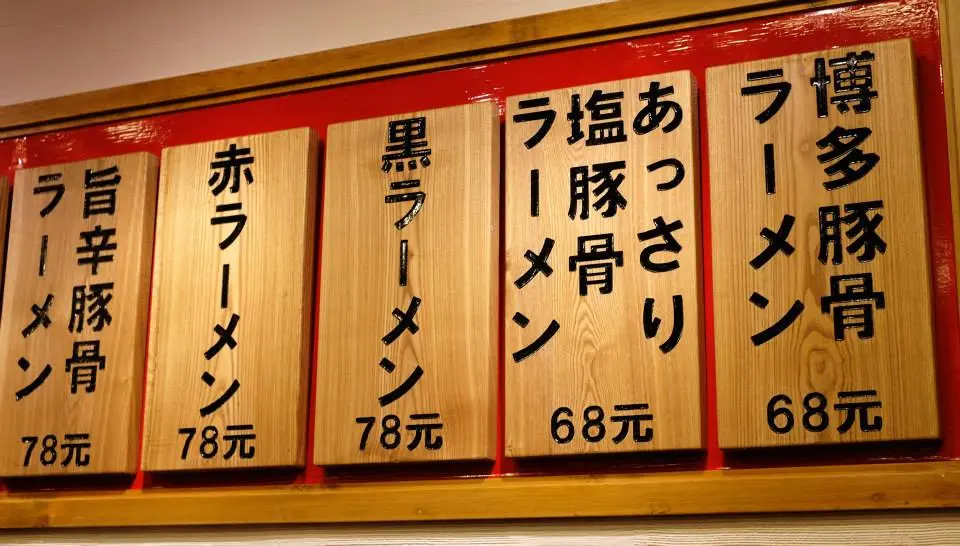 博多豚骨
ラーメン
68元
あっさり
塩豚骨
ラーメン
68元
黒ラーメン
78元
赤ラーメン
78元
旨辛豚骨
ラーメン
78元